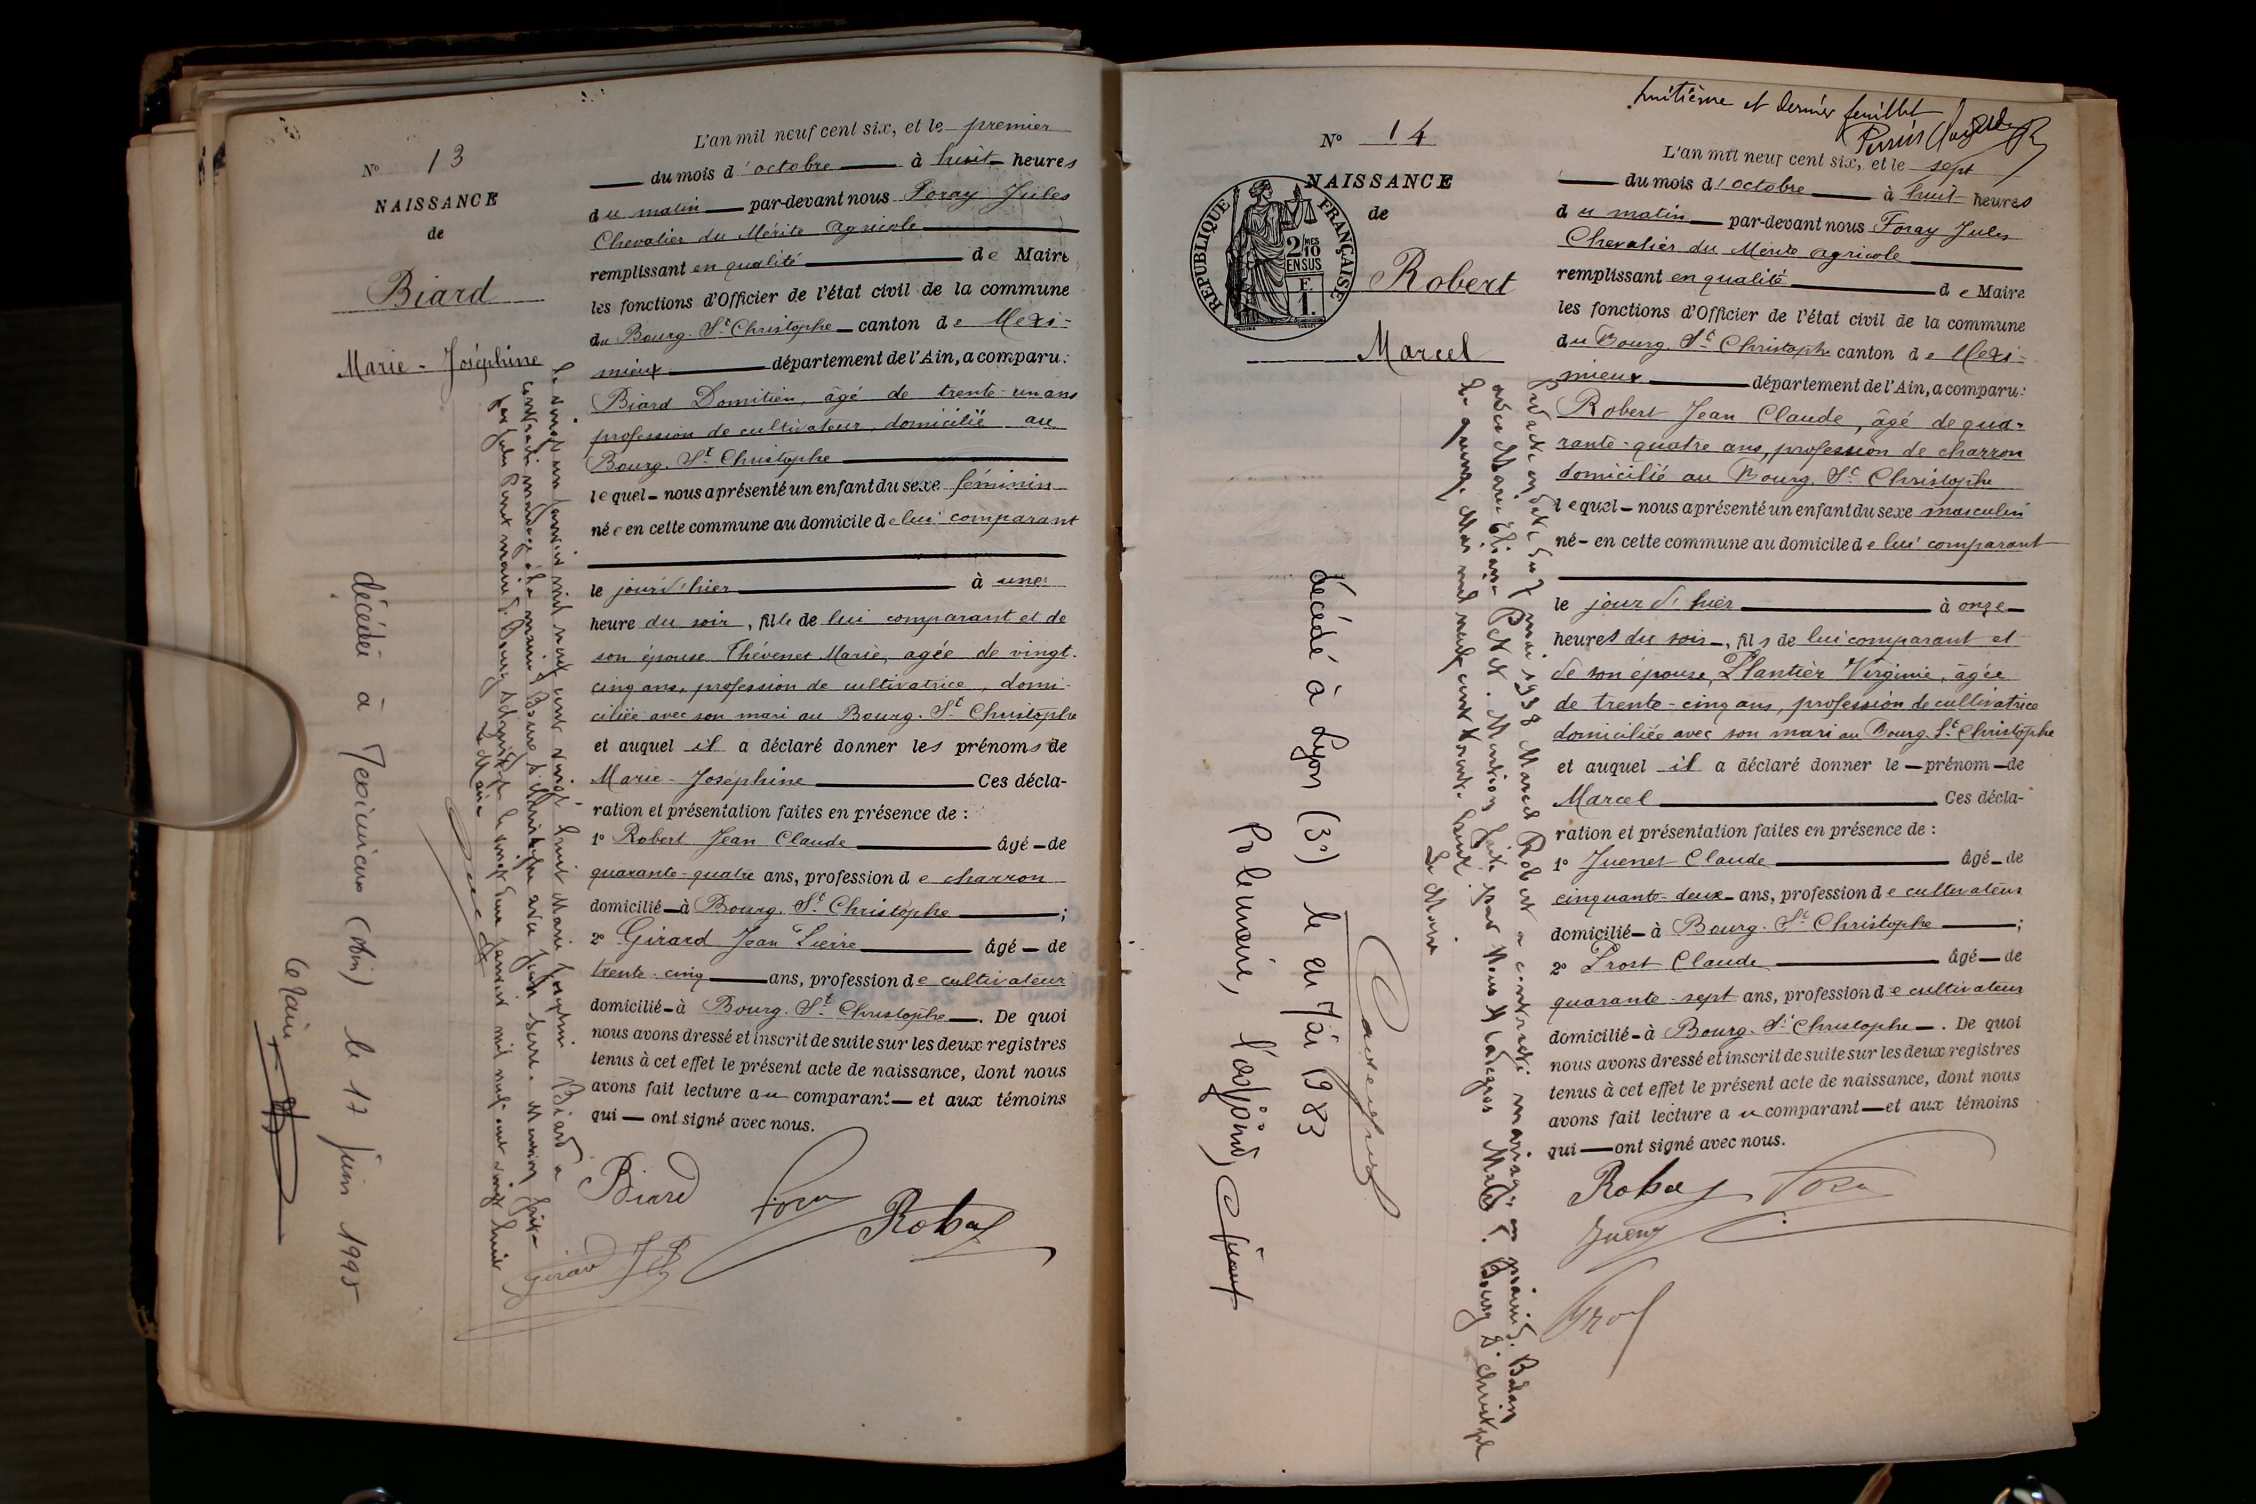 N° 13
NAISSANCE
de
Biard
Marie-Joséphine
L'an mil neuf cent six, et le premier
du mois d'octobre à huit heures
du matin par-devant nous Foray Jules
Chevalier du Mérite Agricole
remplissant en qualité de Maire
les fonctions d'Officier de l'état civil de la commune
du Bourg. St Christophe canton de Mexi-
mieux département de l'Ain, a comparu:
Biard Domitien, âgé de trente-un ans
profession de cultivateur, domicilié au
Bourg. St Christophe
lequel nous a présenté un enfant du sexe féminin
née en cette commune au domicile de lui comparant
le jour d'hier à une
heure du soir, fille de lui comparant et de
son épouse Thévenet Marie, agée de vingt-
cinq ans, profession de cultivatrice, domi-
ciliée avec son mari au Bourg. St Christophe
et auquel il a déclaré donner les prénoms de
Marie-Joséphine Ces décla-
ration et présentation faites en présence de :
1° Robert Jean Claude âgé de
quarante-quatre ans, profession de charron
domicilié à Bourg. St Christophe ;
2° Girard Jean Pierre âgé de
trente-cinq ans, profession de cultivateur
domicilié à Bourg. St Christophe. De quoi
nous avons dressé et inscrit de suite sur les deux registres
tenus à cet effet le présent acte de naissance, dont nous
avons fait lecture au comparant et aux témoins
qui ont signé avec nous.
Biard Robert
Girard JP
Le vingt un janvier mil neuf cent vingt huit Marie Joséphine Biard a
contracté mariage à la mairie Bourg St Christophe avec Serre. Mention faite
par nous maire Bourg St Christophe le vingt deux janvier mil neuf cent vingt huit
Le Maire
décédée à Meximieux (Ain) le 17 juin 1995
Le Maire
huitième et dernier feuillet
N° 14
NAISSANCE
de
RÉPUBLIQUE FRANÇAISE
2/10MES
EN SUS
F.
1.
Robert
Marcel
L'an mil neuf cent six, et le sept
du mois d'octobre à huit heures
du matin par-devant nous Foray Jules
Chevalier du Mérite Agricole
remplissant en qualité de Maire
les fonctions d'Officier de l'état civil de la commune
du Bourg. St Christophe canton de Mexi-
mieux département de l'Ain, a comparu:
Robert Jean Claude, âgé de qua-
rante-quatre ans, profession de charron
domicilié au Bourg. St Christophe
lequel nous a présenté un enfant du sexe masculin
né en cette commune au domicile de lui comparant
le jour d'hier à onze
heures du soir, fils de lui comparant et
de son épouse, Plantier Virginie, âgée
de trente-cinq ans, profession de cultivatrice
domiciliée avec son mari au Bourg. St Christophe
et auquel il a déclaré donner le prénom de
Marcel Ces décla-
ration et présentation faites en présence de :
1° Juenet Claude âgé de
cinquante-deux ans, profession de cultivateur
domicilié à Bourg. St Christophe ;
2° Prost Claude âgé de
quarante-sept ans, profession de cultivateur
domicilié à Bourg. St Christophe. De quoi
nous avons dressé et inscrit de suite sur les deux registres
tenus à cet effet le présent acte de naissance, dont nous
avons fait lecture au comparant et aux témoins
qui ont signé avec nous.
Robert
Prost
Par acte en date du 7 mai 1938 Marcel Robert a contracté mariage en mairie de Balan
avec Marie Petet. Mention faite par Nous Maire de Bourg St Christophe
Le quinze Mai mil neuf cent trente huit.
Le Maire
décédé à Lyon (3e) le 21 Mai 1983
Pour le maire, l'adjoint,